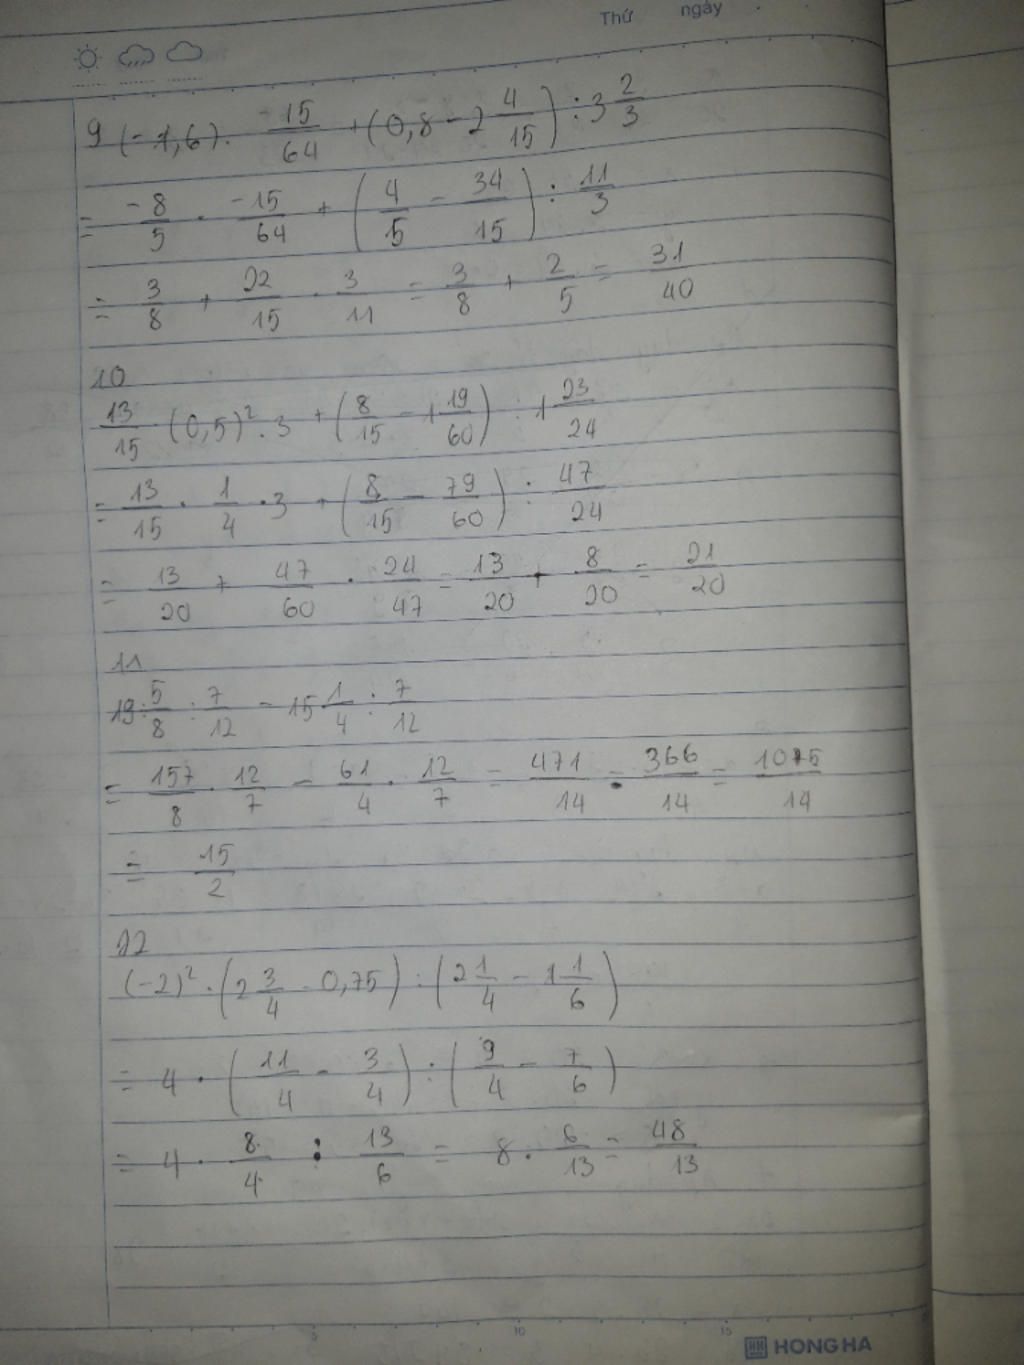 Thứ ngày
9 (-1,6) . -15/64 + (0,8 - 2 4/15) : 3 2/3
= -8/5 . -15/64 + (4/5 - 34/15) : 11/3
= 3/8 + 22/15 . 3/11 = 3/8 + 2/5 = 31/40
10
13/15 . (0,5)² . 3 + (8/15 - 1 19/60) : 1 23/24
= 13/15 . 1/4 . 3 + (8/15 - 79/60) : 47/24
= 13/20 + 47/60 . 24/47 = 13/20 + 8/20 = 21/20
11
19 5/8 : 7/12 - 15 1/4 : 7/12
= 157/8 . 12/7 - 61/4 . 12/7 = 471/14 - 366/14 = 105/14
= 15/2
12
(-2)² . (2 3/4 - 0,75) : (2 1/4 - 1 1/6)
= 4 . (11/4 - 3/4) : (9/4 - 7/6)
= 4 . 8/4 : 13/6 = 8 . 6/13 = 48/13
5 10 15
HONG HA